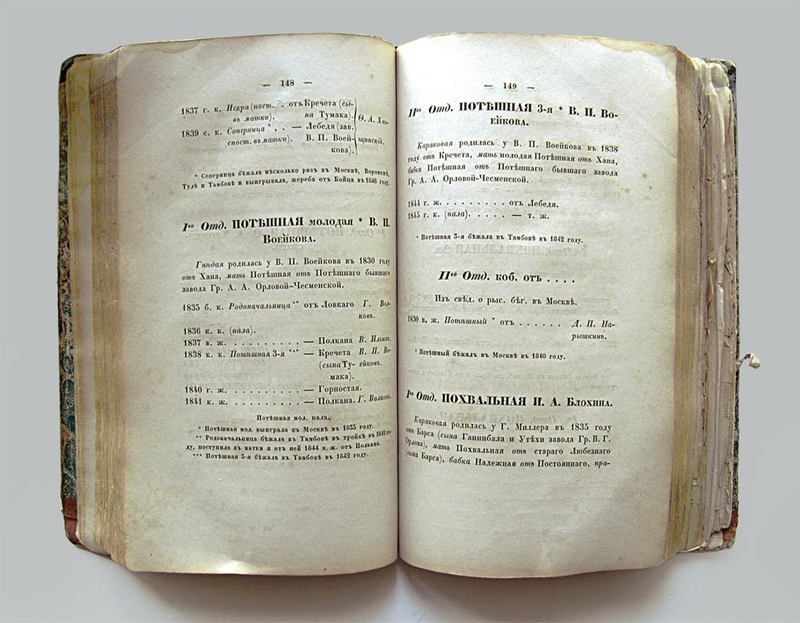 — 148 —
1837 г. к. Искра (пост. . отъ Кречета (сы-
въ матки). на Тумака). Ѳ. А. Хво-
1839 с. к. Соперница * . . — Лебедя (зав. щинскій.
спост. въ матки). В. П. Воей-
кова).
* Соперница бѣжала нѣсколько разъ въ Москвѣ, Воронежѣ,
Тулѣ и Тамбовѣ и выигрывала, жереба отъ Бойца въ 1846 году.
Iго Отд. ПОТѢШНАЯ молодая * В. П.
Воейкова.
Гнѣдая родилась у В. П. Воейкова въ 1830 году
отъ Хана, мать Потѣшная отъ Потѣшнаго бывшаго
завода Гр. А. А. Орловой-Чесменской.
1835 б. к. Родоначальница ** отъ Ловкаго Г. Вол-
ковъ.
1836 к. к. (пала).
1837 в. ж. . . . . . . . . . — Полкана В. Ильинъ.
1838 к. к. Потѣшная 3-я *** — Кречета В. П. Во-
(сына Ту- ейковъ.
мака).
1840 г. ж. . . . . . . . . . — Горностая.
1841 к. ж. . . . . . . . . . — Полкана. Г. Волковъ.
Потѣшная мол. пала.
* Потѣшная мол. выиграла въ Москвѣ въ 1835 году.
** Родоначальница бѣжала въ Тамбовѣ въ тройкѣ въ 1842 го-
ду, поступила въ матки и отъ ней 1844 к. ж. отъ Полкана.
*** Потѣшная 3-я бѣжала въ Тамбовѣ въ 1842 году.
— 149 —
IIго Отд. ПОТѢШНАЯ 3-я * В. П. Во-
ейкова.
Караковая родилась у В. П. Воейкова въ 1838
году отъ Кречета, мать молодая Потѣшная отъ Хана,
бабка Потѣшная отъ Потѣшнаго бывшаго завода
Гр. А. А. Орловой-Чесменской.
1844 г. ж. . . . . . . . . отъ Лебедя.
1845 г. к. (пала). . . . . . — т. ж.
* Потѣшная 3-я бѣжала въ Тамбовѣ въ 1842 году.
IIго Отд. коб. отъ . . . .
Изъ свѣд. о рыс. бѣг. въ Москвѣ.
1830 в. ж. Потѣшный * отъ . . . . . . Д. П. На-
рышкинъ.
* Потѣшный бѣжалъ въ Москвѣ въ 1840 году.
Iго Отд. ПОХВАЛЬНАЯ И. А. Блохина.
Караковая родилась у Г. Миллера въ 1835 году
отъ Барса (сына Ганнибала и Утѣхи завода Гр. В. Г.
Орлова), мать Похвальная отъ стараго Любезнаго
(сына Барса), бабка Надежная отъ Постояннаго, пра-